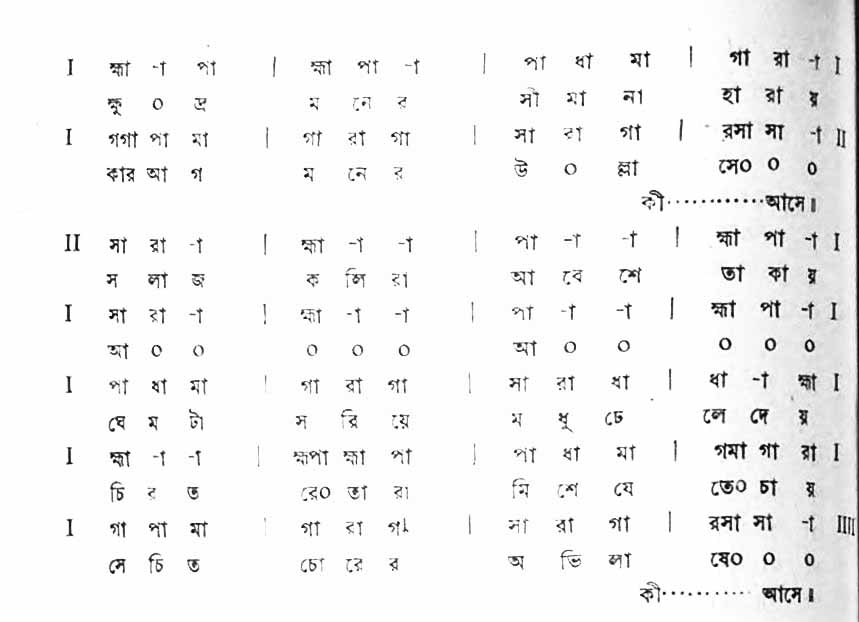 I হ্মা -া পা | হ্মা পা -া | পা ধা মা | গা রা -া I
ক্ষু ০ দ্র ম নে র সী মা না হা রা য়
I গগা পা মা | গা রা গা | সা রা গা | রসা সা -া II
কার আ গ ম নে র উ ০ ল্লা সে০ ০ ০
কী············আসে॥
II সা রা -া | হ্মা -া -া | পা -া -া | হ্মা পা -া I
স লা জ ক লি রা আ বে শে তা কা য়
I সা রা -া | হ্মা -া -া | পা -া -া | হ্মা পা -া I
আ ০ ০ ০ ০ ০ আ ০ ০ ০ ০ ০
I পা ধা মা | গা রা গা | সা রা ধা | ধা -া হ্মা I
ঘে ম টা স রি য়ে ম ধু ঢে লে দে য়
I হ্মা -া -া | হ্মপা হ্মা পা | পা ধা মা | গমা গা রা I
চি র ত রে০ তা রা মি শে যে তে০ চা য়
I গা পা মা | গা রা গা | সা রা গা | রসা সা -া IIII
সে চি ত চো রে র অ ভি লা ষে০ ০ ০
কী··········· আসে॥